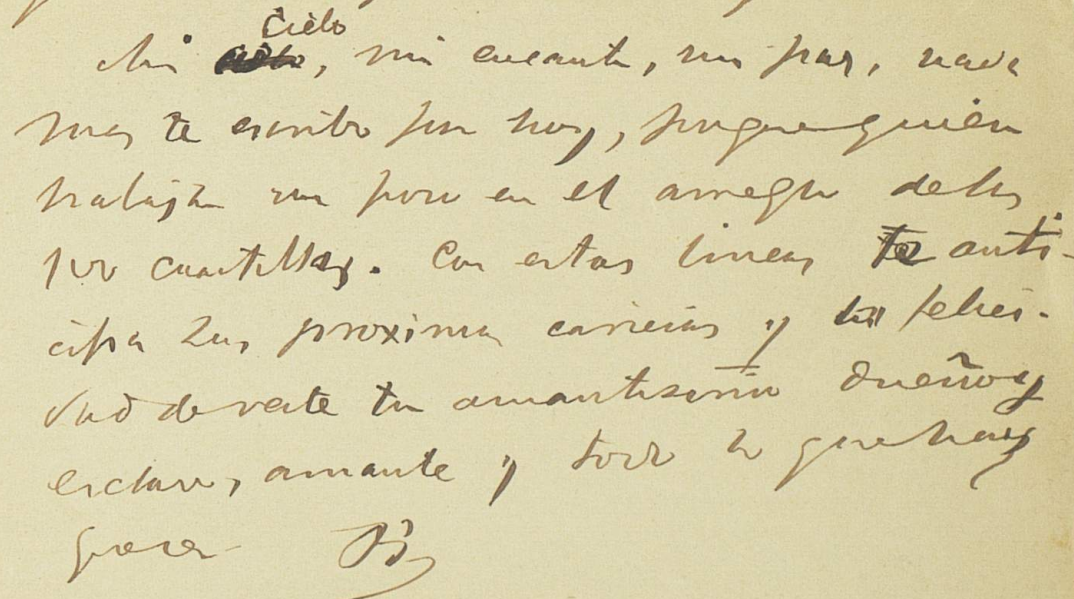 Cielo
Mi cielo, mi encanto, mi paz, nada
mas te escribo por hoy, porque quiero
trabajar un poco en el arreglo de las
cuartillas. Con estas lineas te anti-
cipa las proximas caricias y la felici-
dad de verte tu amantisimo dueño y
esclavo, amante y todo lo que hay